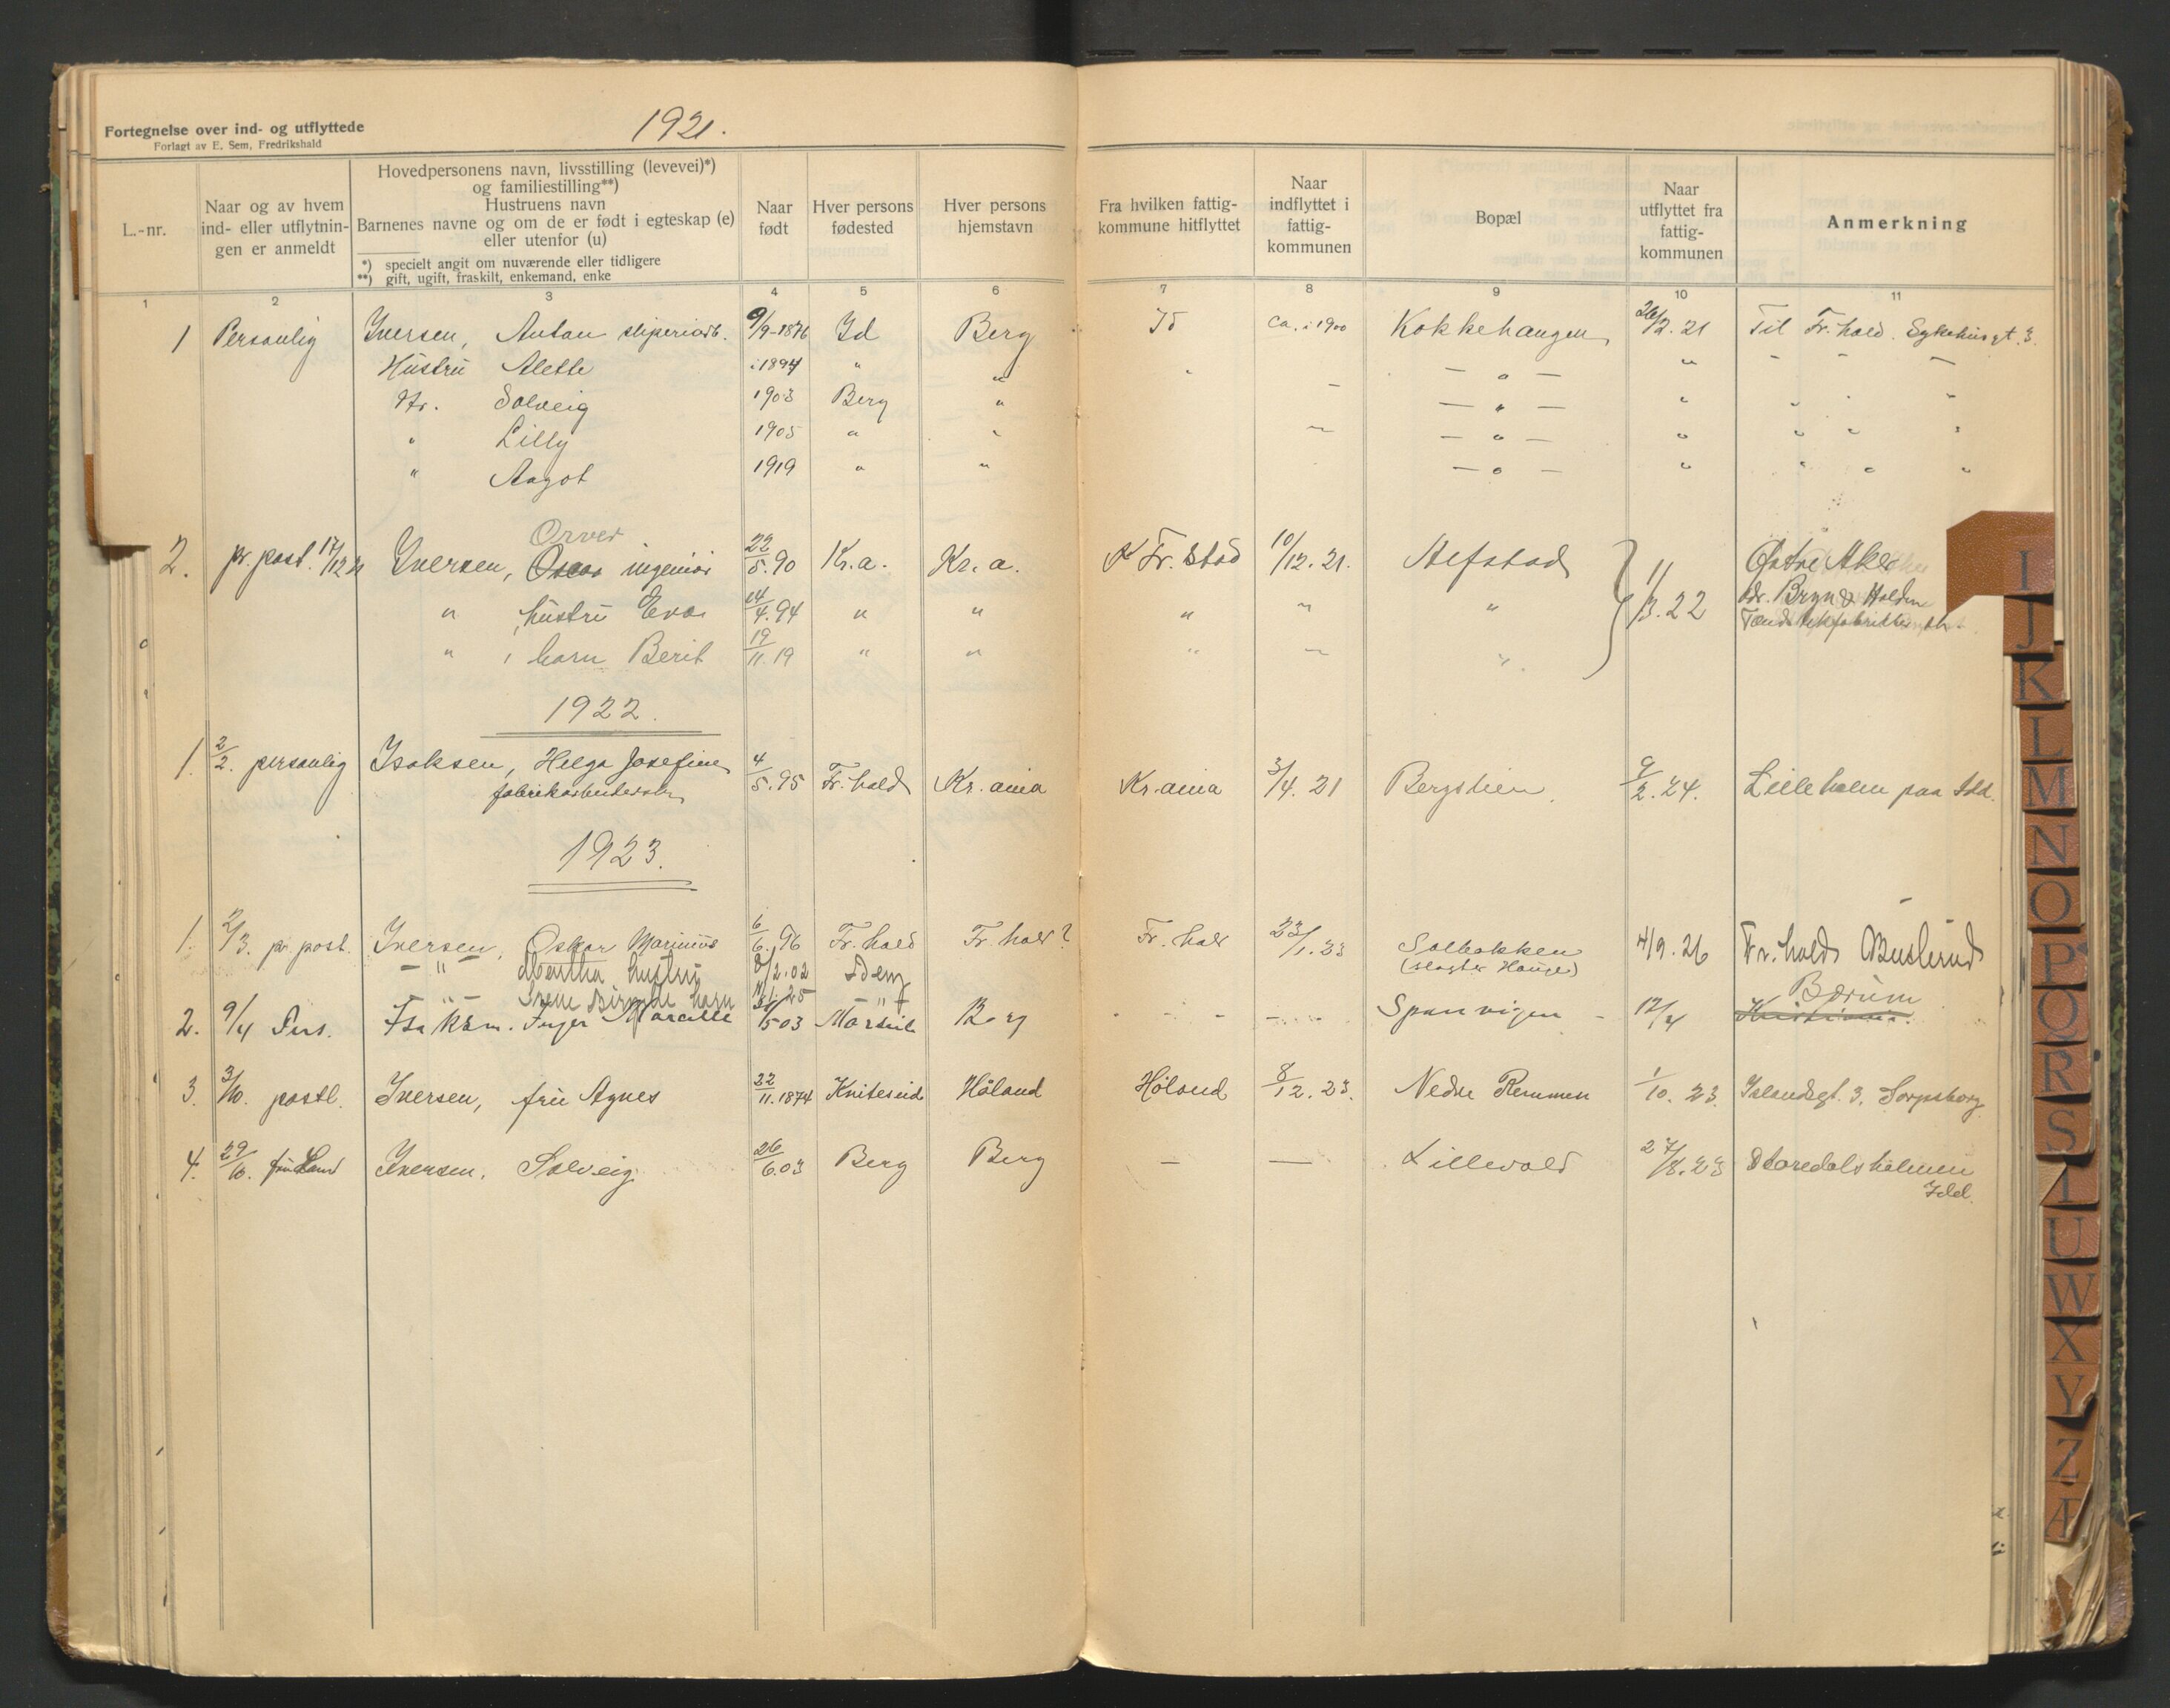 Fortegnelse over ind- og utflyttede
Forlagt av E. Sem, Fredrikshald
1921.
L.-nr.
Naar og av hvem ind- eller utflytnin- gen er anmeldt
Hovedpersonens navn, livsstilling (levevei)*)
og familiestilling**)
Hustruens navn
Barnenes navne og om de er født i egteskap (e)
eller utenfor (u)
*) specielt angit om nuværende eller tidligere
**) gift, ugift, fraskilt, enkemand, enke
Naar født
Hver persons fødested
Hver persons hjemstavn
Fra hvilken fattig- kommune hitflyttet
Naar indflyttet i fattig- kommunen
Bopæl
Naar utflyttet fra fattig- kommunen
Anmerkning
1 2 3 4 5 6 7 8 9 10 11
1 Personlig Iversen, Anton sliperiarb. 9/9-1876 Id Berg Id ca. i 1900 Kokkehaugen 26/2.21 Til Fr.hald. Sykehusgt. 3.
Hustru Alette i 1894 " " " — " — " - - -
Dtr. Solveig 1903 Berg " — — " — " " " "
" Lilly 1905 " " — — " — " " " "
" Aagot 1919 " " — " — " " " "
Orver
2. pr. post. 17/12 21 Iversen, ingeniør 22/5.90 Kr.a. Kr.a. Fr.stad 10/12.21. Refstad 1/3.22 Østre Aker
" , hustru Eva 14/4.94 " " " " " adr. Bryn & Halden
" , barn Berit 19/11.19 " " " " " Tændstikfabrikker
1922.
1. 2/2. personlig Isaksen, Helga Josefine 4/5.95 Fr.hald Kr.ania Kr.ania 3/4.21 Bergslien 9/2.24. Lilleholm paa Idd.
fabrikarbeiderske
1923.
1. 2/3. pr post. Iversen, Oskar Marinius 6/6.96 Fr.hald Fr.hald? Fr.hald 23/1.23 Solbakken 4/9.26 Fr.hald Buslerud
— " — hustru 8/2.02 Idem (slagter Hauge)
— " — Irene barn — " — Bærum
2. 9/4 Pers. Isaksen. Inger 5.03 Berg - - - - - - Sponvigen - 12/4 Kristiania.
3. 3/10. postl. Iversen, frü Agnes 22/11.1874 Høland Høland 8/12.23. Nedre Remmen 1/10.23. Islandsgt. 3, Sarpsborg
4. 29/10. Iversen, Solveig 26/6.03 Berg Berg — — Lillevold 27/8.23 Staredalsholmen
Idd.
I
J
K
L
M
N
O
P
Q
R
S
T
U
W
X
Y
Z
Æ